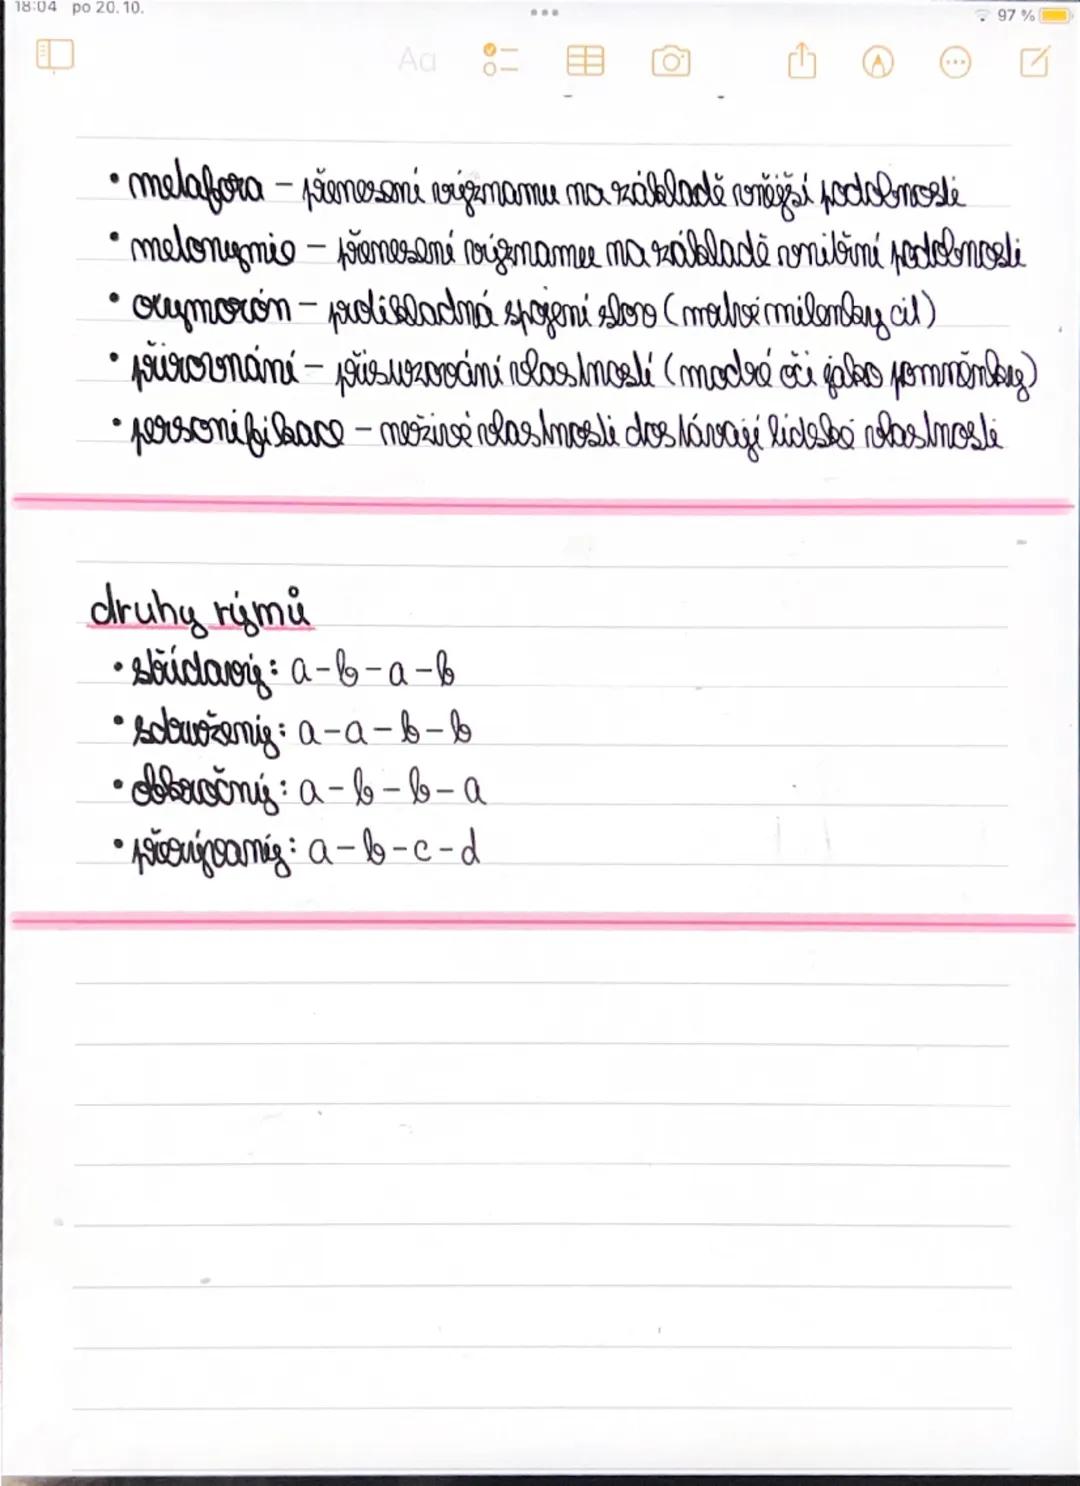 18:04 po 20. 10.
97 %
Aa
• metafora – přenesení významu na základě vnější podobnosti
• metonymie – přenesení významu na základě vnitřní podobnosti
• oxymorón – protikladná spojení slov (mrtvé milenky cit)
• přirovnání – přisuzování vlastností (modré oči jako pomněnky)
• personifikace – neživé vlastnosti dostávají lidské vlastnosti
druhy rýmů
• střídavý: a-b-a-b
• sdružený: a-a-b-b
• obkročný: a-b-b-a
• přerývaný: a-b-c-d